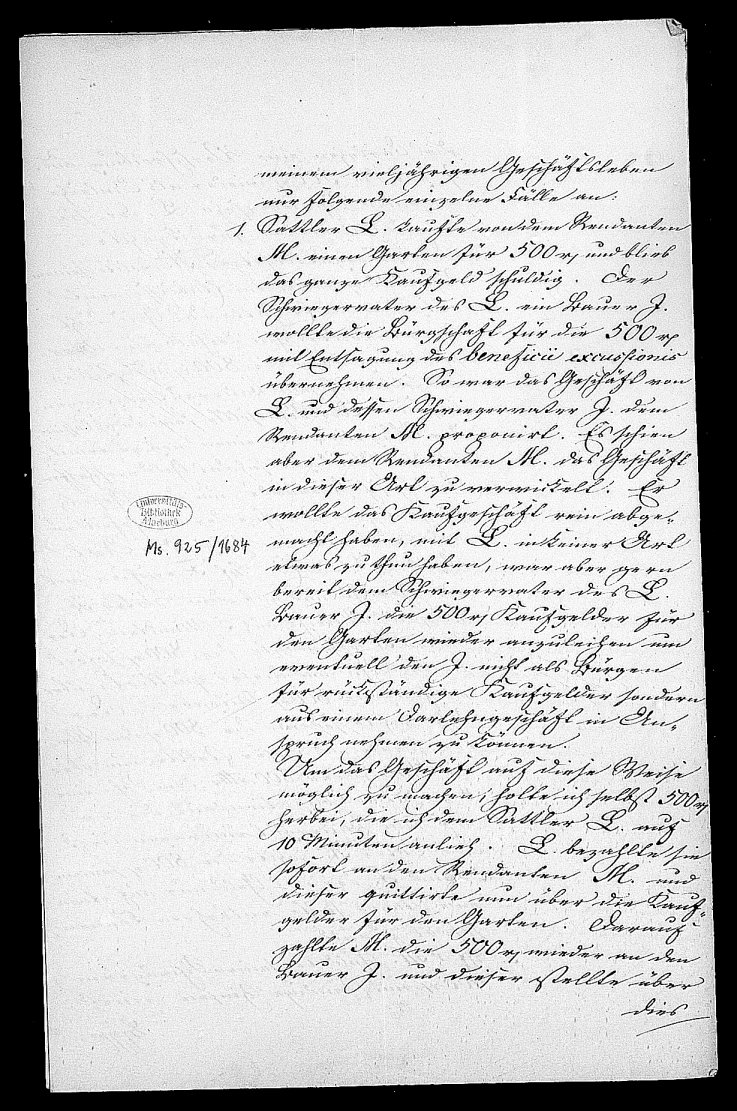 meinem vieljährigen Geschäftsleben
nur folgende einzelne Fälle an:
1. Sattler L. kaufte von dem Rendanten
M. einen Garten für 500 rℓ und blieb
das ganze Kaufgeld schuldig. Der
Schwiegervater des L. ein Bauer J.
wollte die Bürgschaft für die 500 rℓ
mit Entsagung des beneficii excussionis
übernehmen. So war das Geschäft von
L. und dessen Schwiegervater J. dem
Rendanten M. proponirt. Es schien
aber dem Rendanten M. das Geschäft
in dieser Art zu verwickelt. Er
wollte das Kaufgeschäft rein abge-
macht haben, mit L. in keiner Art
etwas zu thun haben, war aber gern
bereit dem Schwiegervater des L.
Bauer J. die 500 rℓ Kaufgelder für
den Garten wieder anzuleihen um
eventuell den J. nicht als Bürgen
für rückständige Kaufgelder sondern
aus einem Darlehngeschäft in An-
spruch nehmen zu können.
Um das Geschäft auf diese Weise
möglich zu machen, holte ich selbst 500 rℓ
herbei, die ich dem Sattler L. auf
10 Minuten anlieh. L. bezahlte sie
sofort an den Rendanten M. und
dieser quittirte nun über die Kauf-
gelder für den Garten. Darauf
zahlte M. die 500 rℓ wieder an den
Bauer J. und dieser stellte über
dies
Universitäts-
Bibliothek
Marburg
Ms. 925/1684